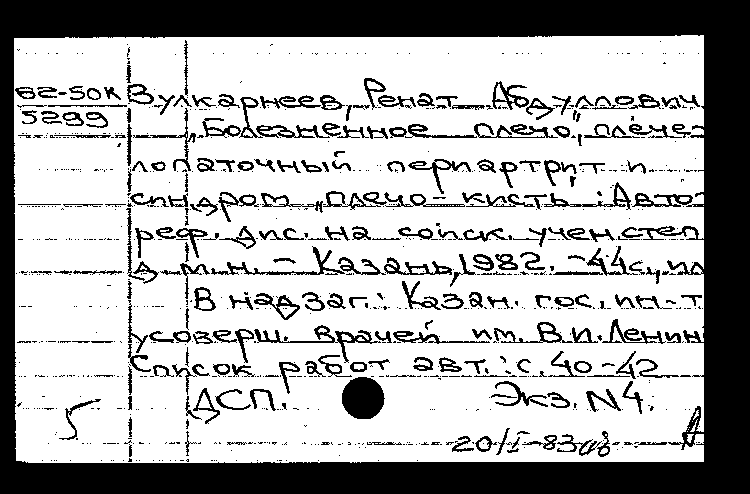 82-50К Зулкарнеев, Ренат Абдуллович
5299 „Болезненное плечо", плече-
лопаточный периартрит и
синдром „плечо-кисть": Авто-
реф. дис. на соиск. учен. степ
д. м. н. - Казань, 1982. - 44с., ил
В надзаг.: Казан. гос. ин-т
усоверш. врачей им. В.И. Ленин
Список работ авт.: с. 40-42
ДСП. Экз. N4.
5 20/I-83